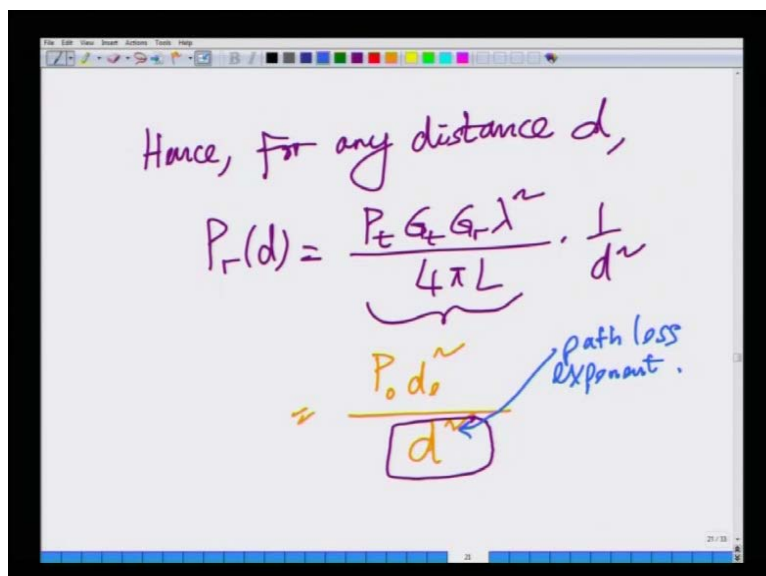 File Edit View Insert Actions Tools Help
B I
Hence, For any distance d,
Pr(d) = Pt Gt Gr λ² / 4πL . 1 / d²
path loss
exponent.
= P₀ d₀² / d²
21/33
21